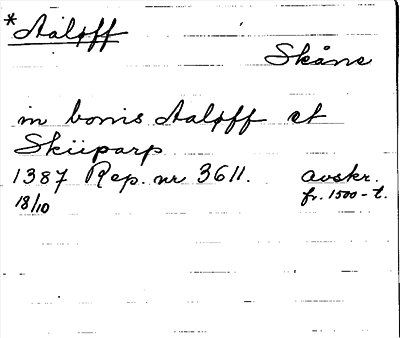 * Aaløff
Skåne
in bonis Aaløff et
Skiiparp
1387 Rep. nr 3611. avskr.
18/10 fr. 1500-t.